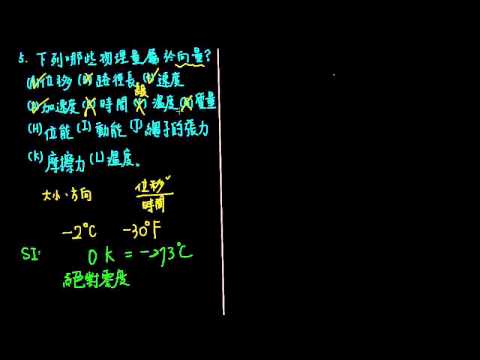 5. 下列哪些物理量屬於向量?
(A)位移 (B)路徑長 (C)速度
誤
(D)加速度 (E)時間 (F)溫度 (G)質量
(H)位能 (I)動能 (J)繩子的張力
(K)摩擦力 (L)溫度。
大小、方向
位移
時間
-2°C -30°F
SI: 0 K = -273°C
絕對零度